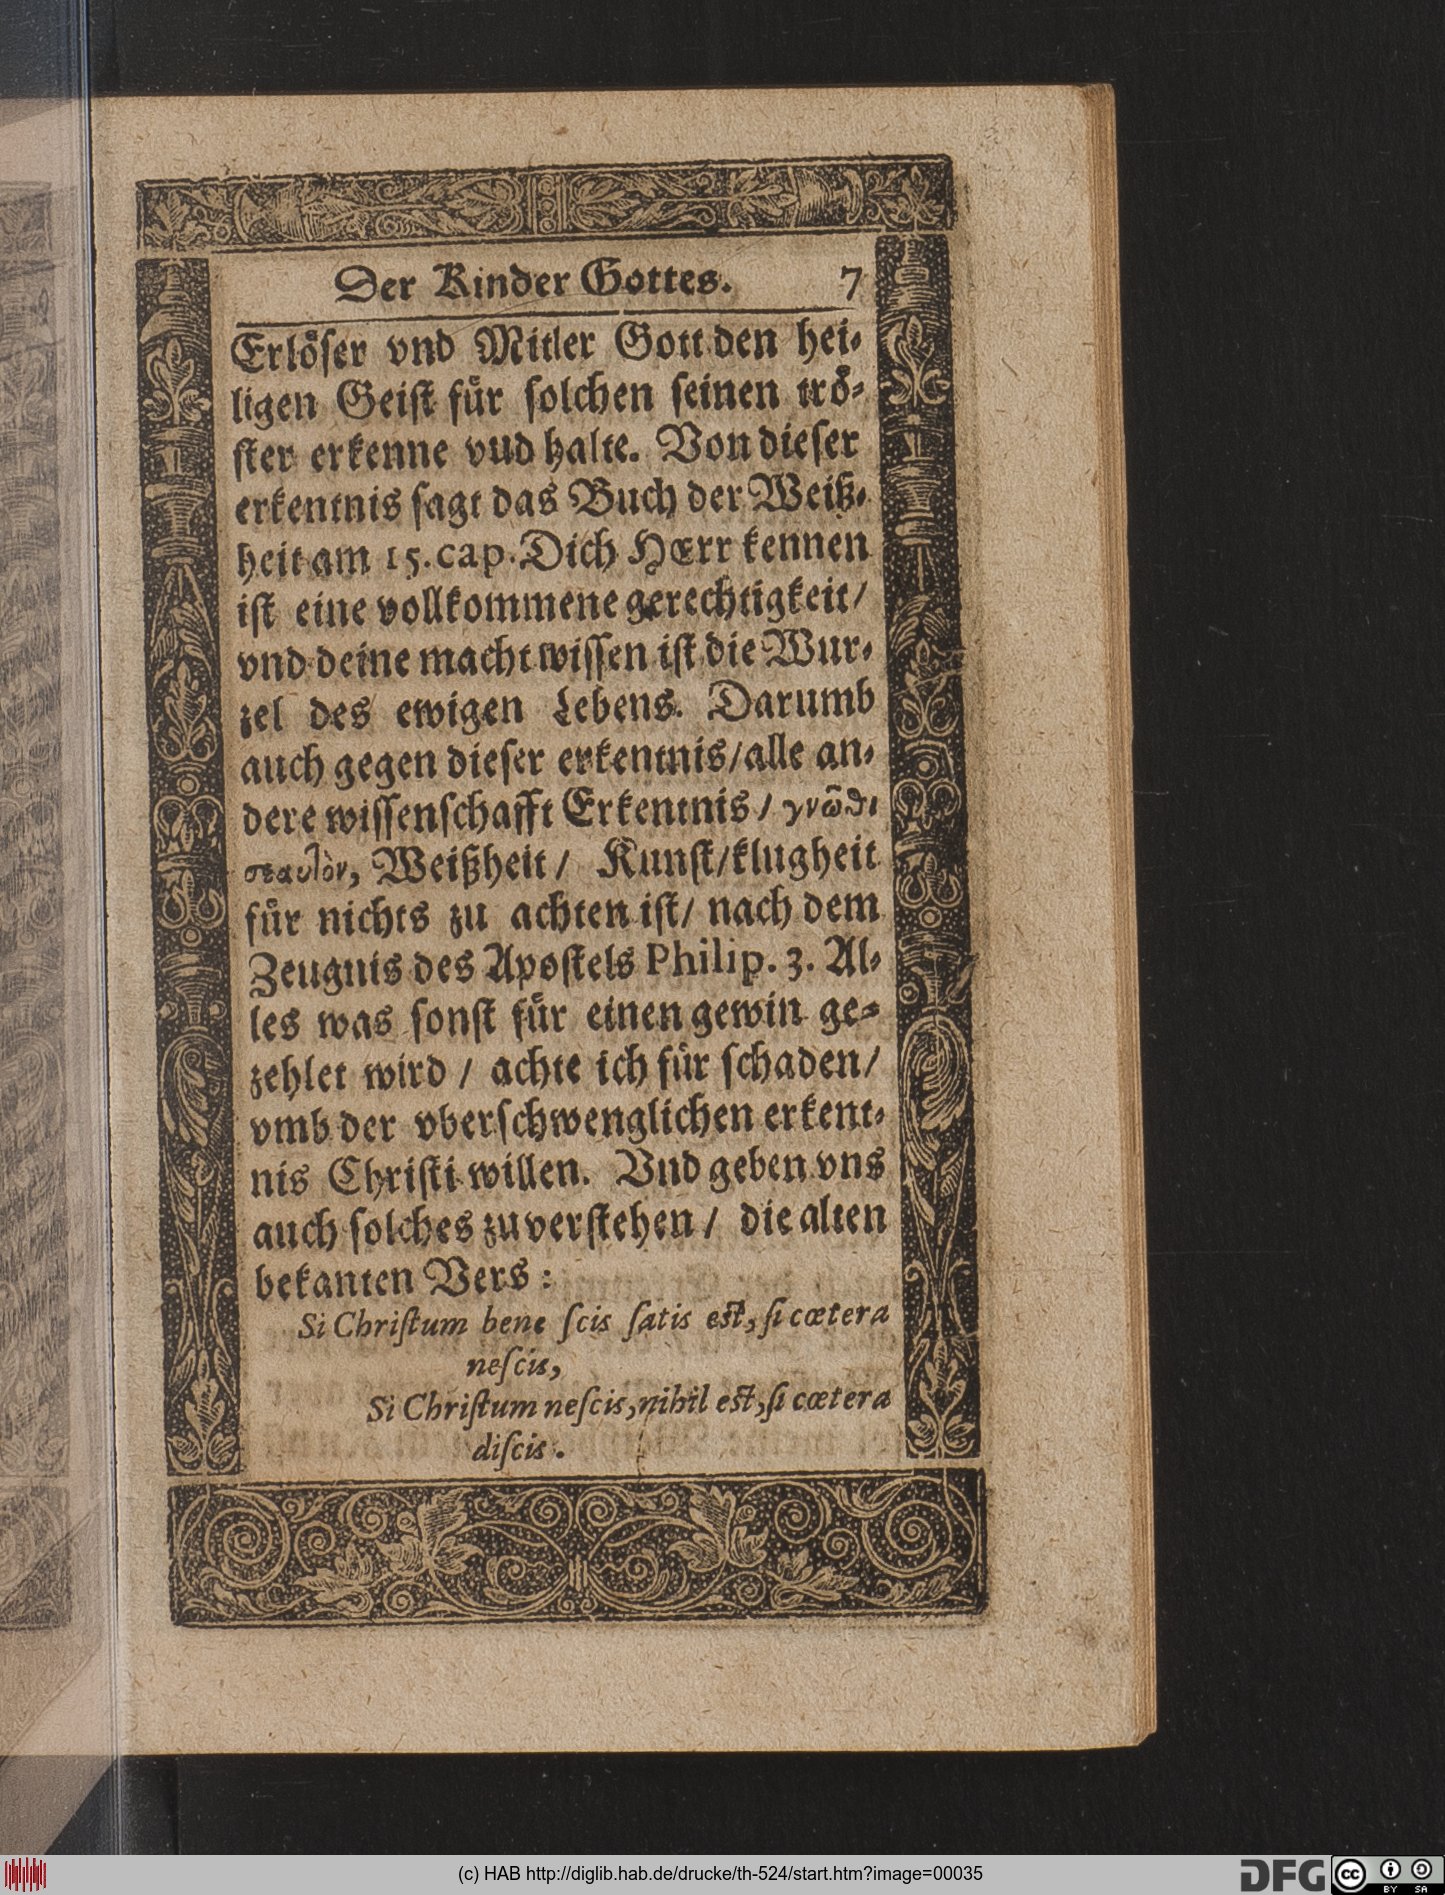 Der Kinder Gottes. 7
Erlöser vnd Mitler Gott den hei-
ligen Geist für solchen seinen trö-
ster erkenne vud halte. Von dieser
erkentnis sagt das Buch der Weiß-
heit am 15. cap. Dich HErr kennen
ist eine vollkommene gerechtigkeit/
vnd deine macht wissen ist die Wur-
zel des ewigen Lebens. Darumb
auch gegen dieser erkentnis/alle an-
dere wissenschafft Erkentnis/ γνῶθι
σεαυτὸν, Weißheit/ Kunst/klugheit
für nichts zu achten ist/ nach dem
Zeugnis des Apostels Philip. 3. Al-
les was sonst für einen gewin ge-
zehlet wird / achte ich für schaden/
vmb der vberschwenglichen erkent-
nis Christi willen. Vnd geben vns
auch solches zuverstehen/ die alten
bekanten Vers:
Si Christum bene scis satis est, si cœtera
nescis,
Si Christum nescis, nihil est, si cœtera
discis.
(c) HAB http://diglib.hab.de/drucke/th-524/start.htm?image=00035
DFG
cc
BY SA